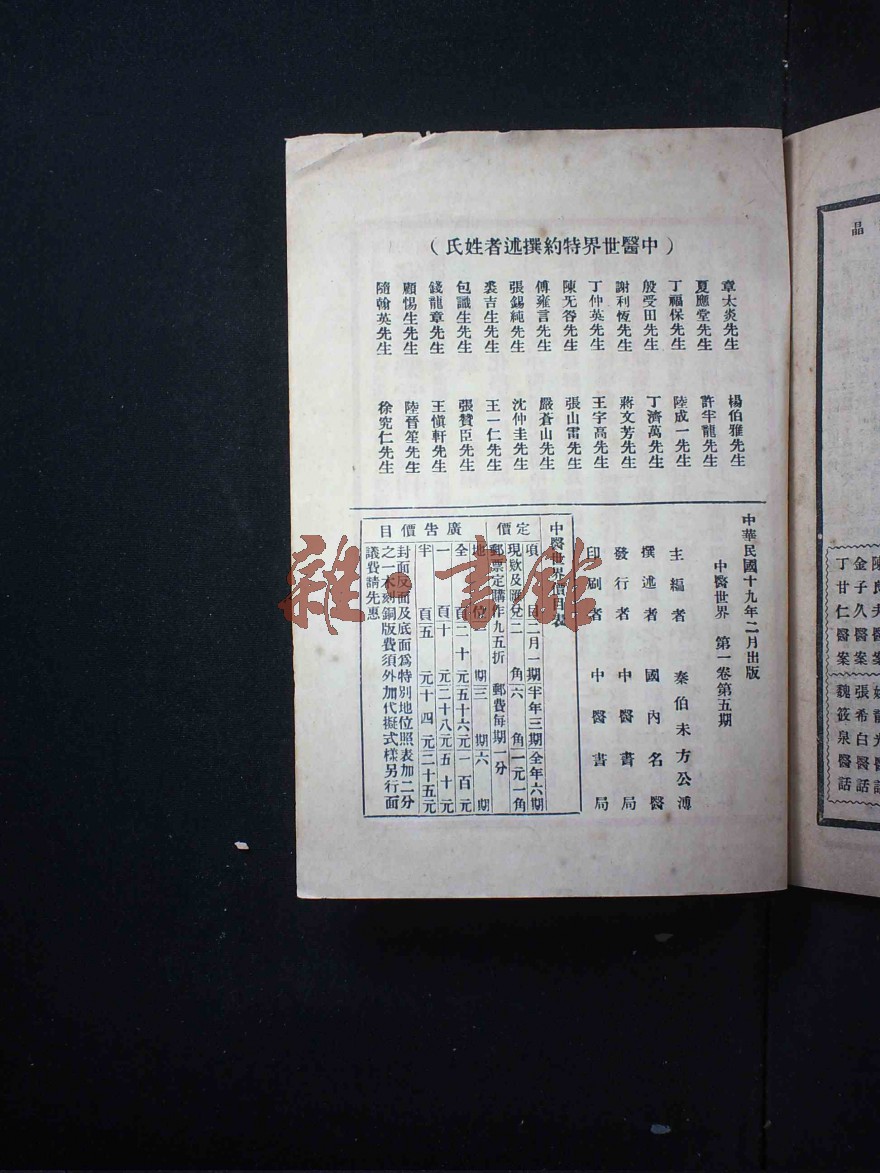 （中醫世界特約撰述者姓氏）
章太炎先生
夏應堂先生
丁福保先生
殷受田先生
謝利恆先生
丁仲英先生
陳无咎先生
傅雍言先生
張錫純先生
裘吉生先生
包識生先生
錢龍章先生
顧惕生先生
隨翰英先生
楊伯雅先生
許半龍先生
陸成一先生
丁濟萬先生
蔣文芳先生
王宇高先生
張山雷先生
嚴蒼山先生
沈仲圭先生
王一仁先生
張贊臣先生
王愼軒先生
陸晉笙先生
徐究仁先生
中華民國十九年二月出版
中醫世界 第一卷第五期
主編者 秦伯未方公溥
撰述者 國內名醫
發行者 中醫書局
印刷者 中醫書局
中醫世界價目表
定價
項目二月一期半年三期全年六期
現欵及匯兌二角六角一元一角
郵票定購作九五折 郵費每期一分
廣告價目
地位一期三期六期
全頁二十元五十六元一百元
一頁十元二十八元五十元
半頁五元十四元二十五元
封面反面及底面爲特別地位照表加二分
之一木刻銅版費須外加代擬式樣另行面
議費請先惠
雜·書館
晶
金子久醫案
丁甘仁醫案
張希白醫話
魏筱泉醫話